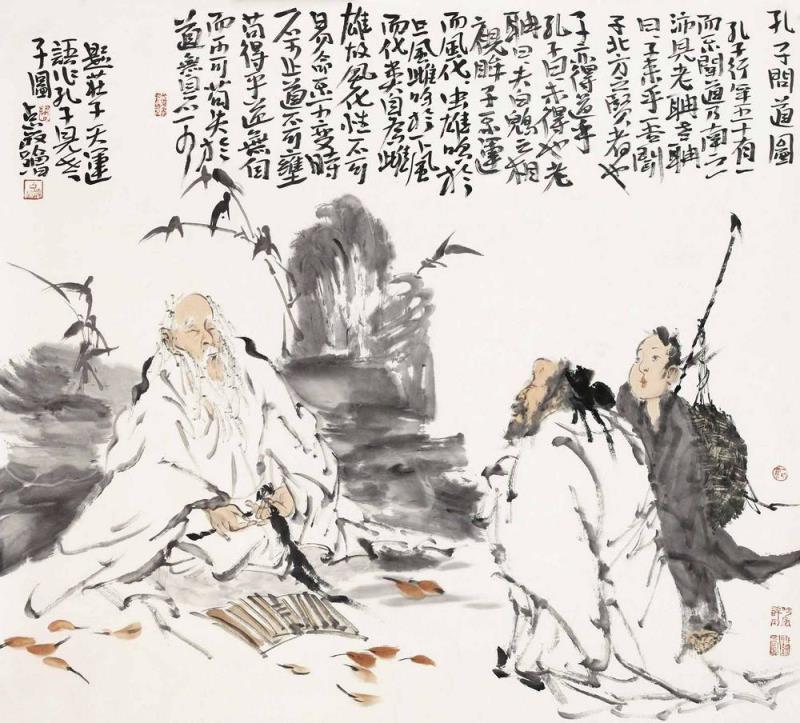 孔子問道圖
孔子行年五十有一
而不聞道乃南之
沛見老聃老聃
曰子來乎吾聞
子北方之賢者也
子亦得道乎
孔子曰未得也老
聃曰夫白鶂之相
視眸子不運
而風化虫雄鳴於
上風雌鳴於下風
而化类自為雌
雄故風化性不可
易命不可變時
不可止道不可壅
苟得乎道無自
而不可苟失於
道無自不可
題莊子天運
語作孔子見老
子圖